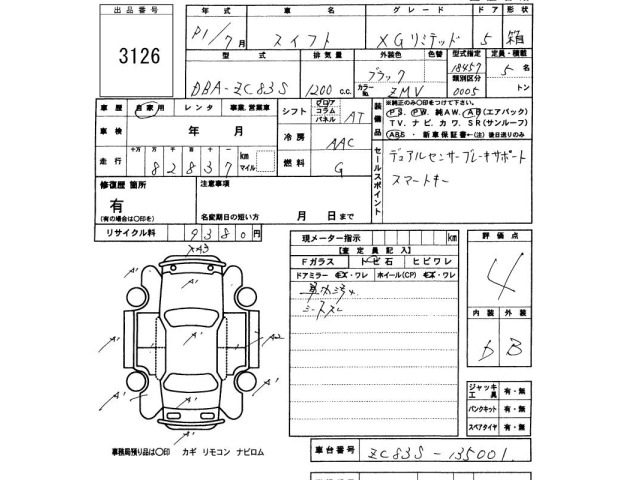 出品番号
3126
年式 車名 グレード ドア 形状
R1/7月 スイフト XGリミテッド 5 箱
型式 排気量 外装色 色替 型式指定 定員・積載
DBA-ZC83S 1200 c.c. ブラック カラーNo. ZMV 18457 類別区分 0005 5名 トン
車歴 自家用 レンタ 事業、営業車
シフト フロア コラム パネル AT
装備品 ※純正のみ○印をつけて下さい。
PS. PW. 純AW. AB(エアバック)
TV. ナビ. カワ. SR(サンルーフ)
ABS ・新車保証書←(注)後日送りのみ
車検 年 月
冷房 AAC
走行 十万 万 千 百 十 一
82837 km マイル
燃料 G
セールスポイント
デュアルセンサーブレーキサポート
スマートキー
修復歴 箇所
有
(有の場合は○印を)
注意事項
名変期日の短い方 月 日まで
リサイクル料 9380円
現メーター指示 km
【査定員記入】
Fガラス トビ石 ヒビワレ
ドアミラー キズ・ワレ ホイール(CP) キズ・ワレ
シートスレ
評価点
4
内装 外装
D B
ジャッキ 工具 有・無
パンクキット 有・無
スペアタイヤ 有・無
A1
A2
事務局預り品は○印 カギ リモコン ナビロム
車台番号 ZC83S-135001